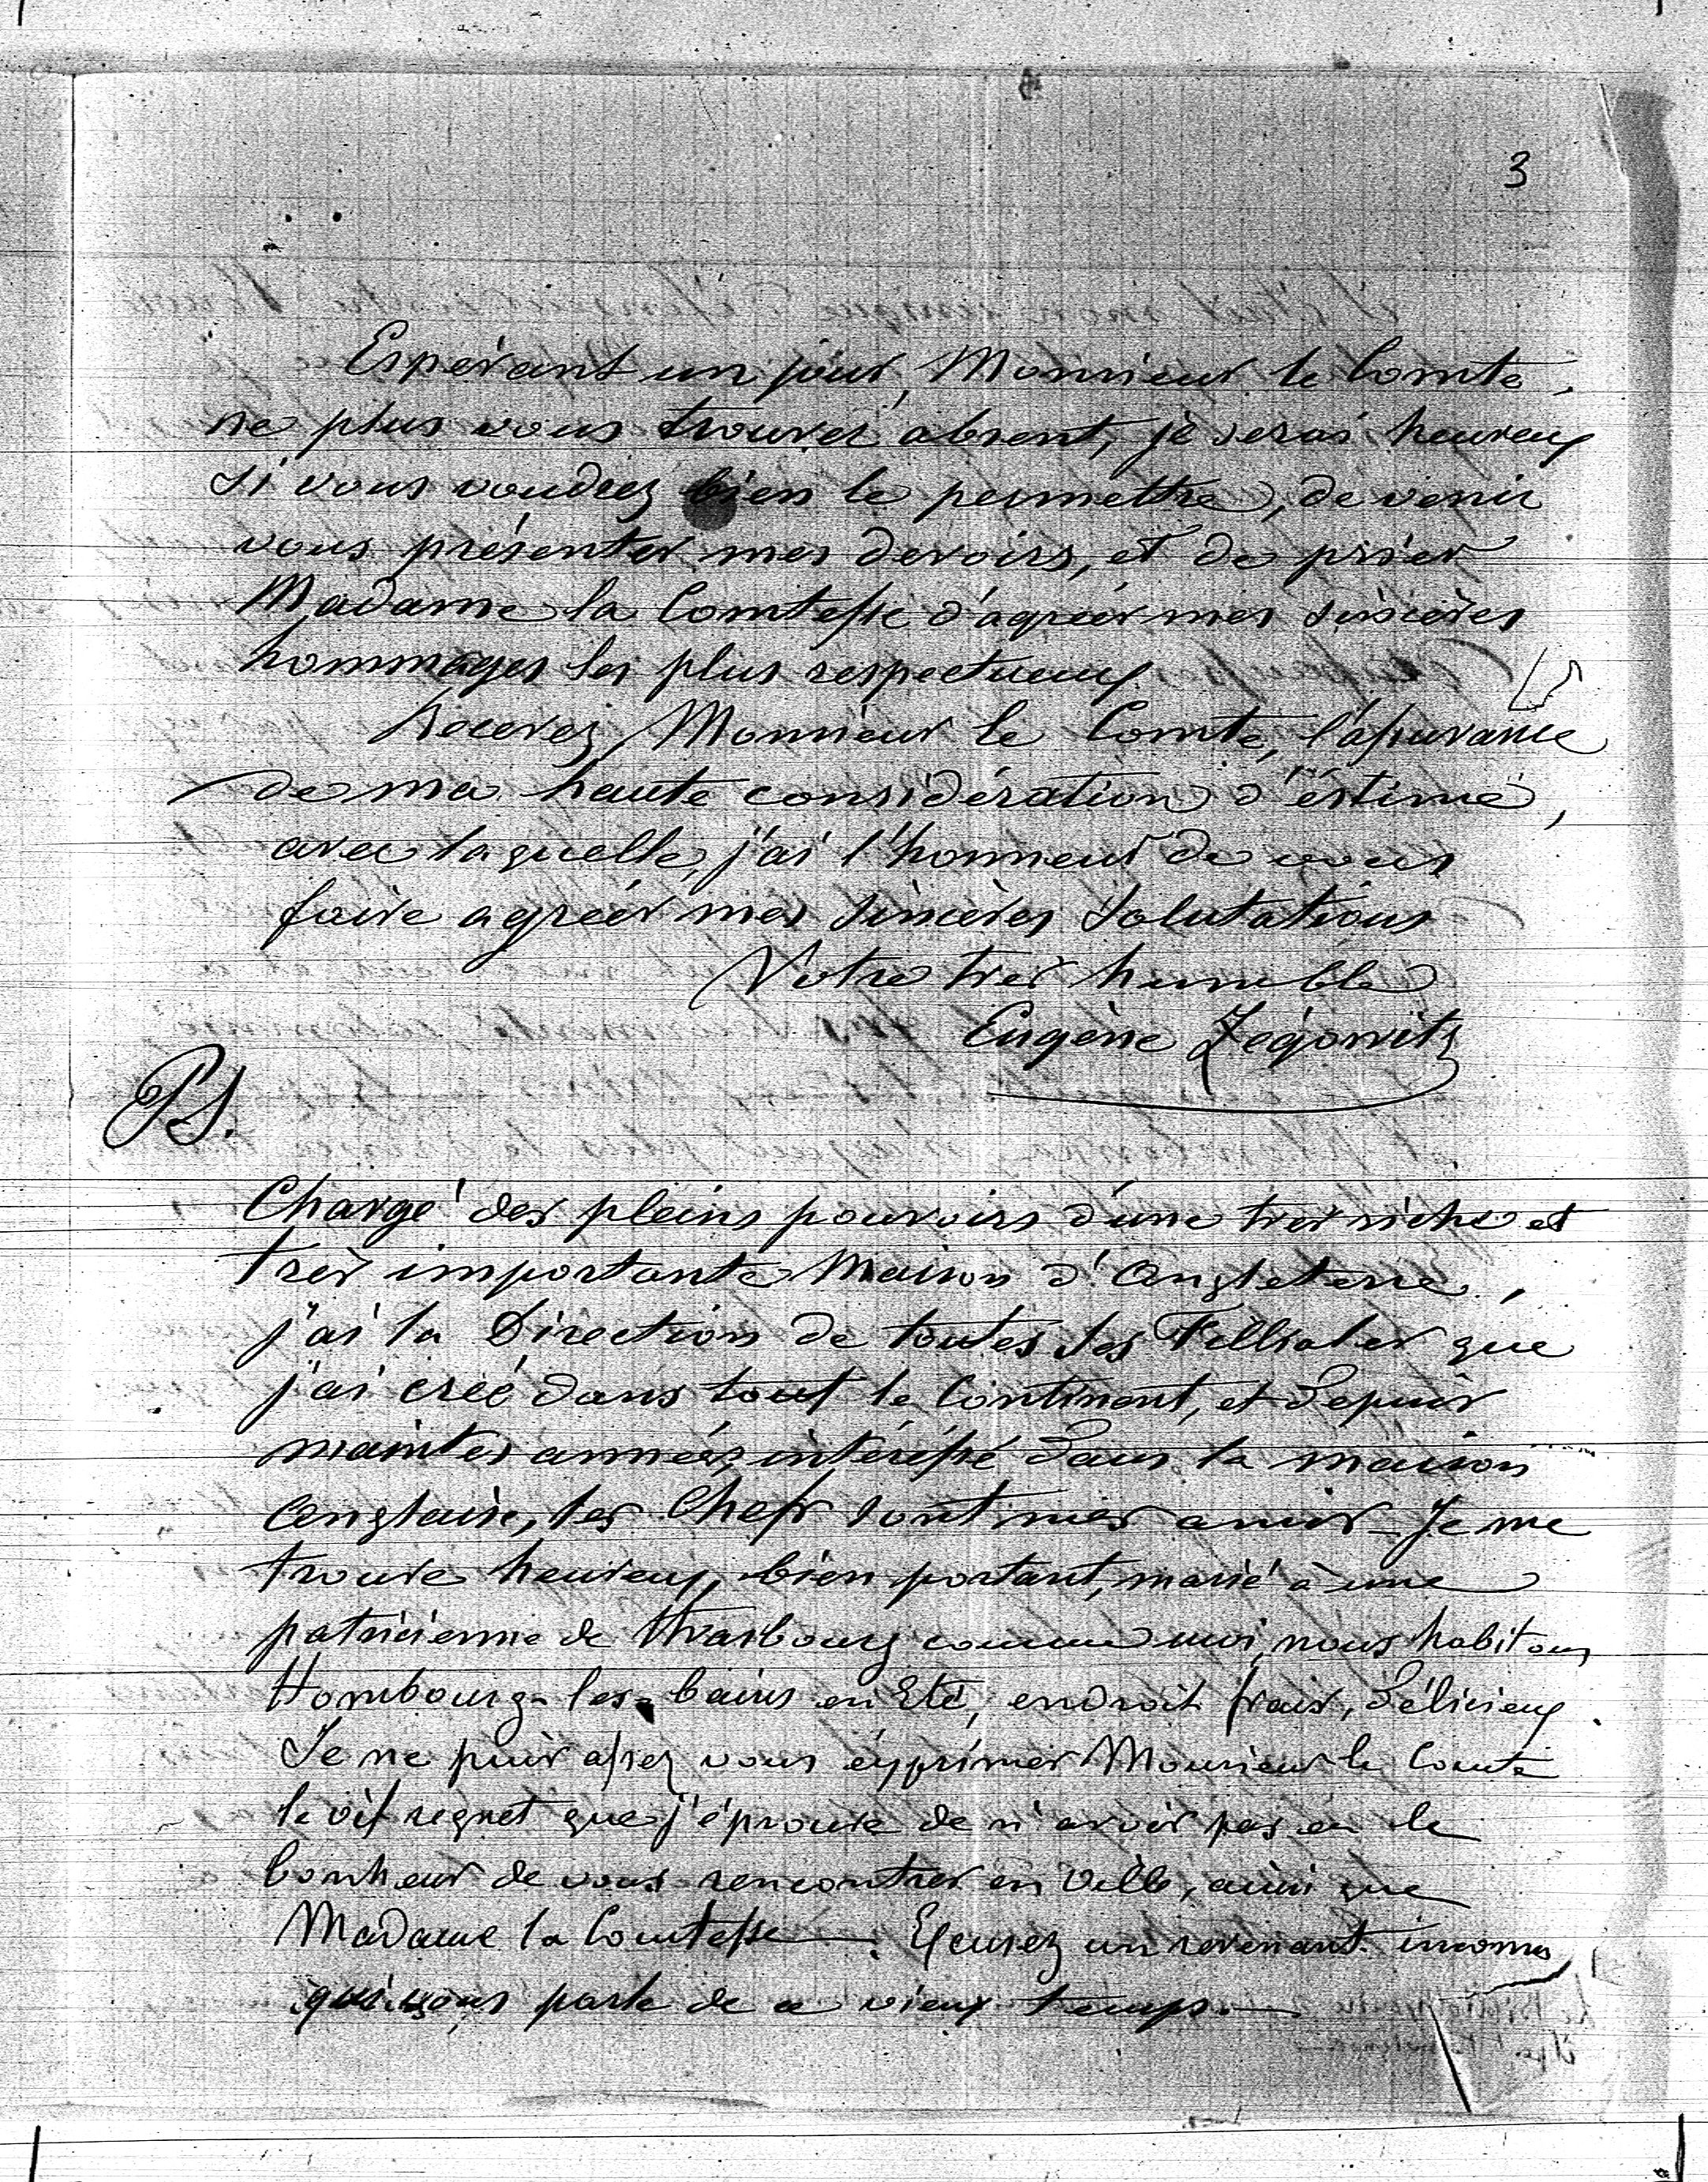 3
Espérant un jour, Monsieur le Comte,
ne plus vous trouver absent, je serai heureux
si vous voudrez bien le permettre, de venir
vous présenter mes devoirs, et de prier
Madame la Comtesse d'agréer mes sincères
hommages les plus respectueux.
Recevez, Monsieur le Comte, l'assurance
de ma haute considération d'éstime,
avec laquelle, j'ai l'honneur de vous
faire agréér mes sincères Salutations
Votre très humble
Eugène Zégowitz
PS.
Chargé des pleins pouvoirs d'une très riche et
très importante Maison d'Angleterre,
j'ai la Direction de toutes les Filliales que
j'ai créé dans tout le Continent, et depuis
maintes années, intéressé dans la maison
Anglaise, les Chefs sont mes amis - Je me
trouve heureux, bien portant, marié à une
patricienne de Strasbourg comme moi, nous habitons
Hombourg-les-bains en Eté, endroit frais, délicieux.
Je ne puis assez vous exprimer Monsieur le Comte
le vif regret que j'éprouve de n'avoir pas eu le
bonheur de vous rencontrer en Ville, ainsi que
Madame la Comtesse —. Excusez un revenant inconnu
qui vous parle de ce vieux temps. —